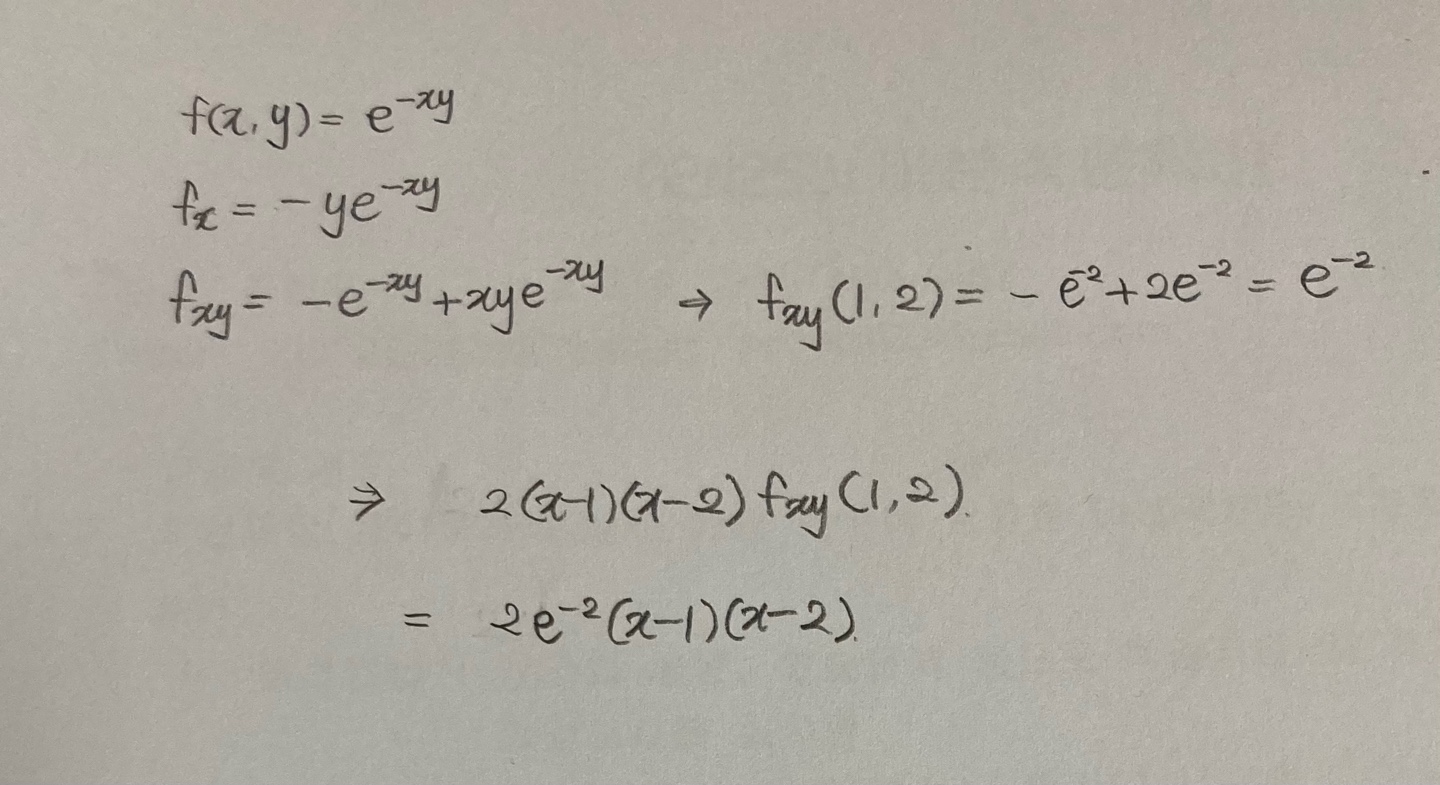 f(x,y) = e^{-xy}
f_x = -ye^{-xy}
f_{xy} = -e^{-xy} + xye^{-xy} → f_{xy}(1,2) = -e^{-2} + 2e^{-2} = e^{-2}
⇒ 2(x-1)(x-2) f_{xy}(1,2).
= 2e^{-2}(x-1)(x-2).